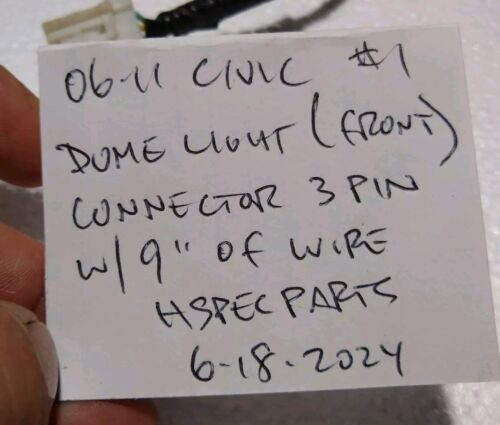 06-11 CIVIC #1
DOME LIGHT (FRONT)
CONNECTOR 3 PIN
W/ 9" OF WIRE
HSPECPARTS
6-18-2024